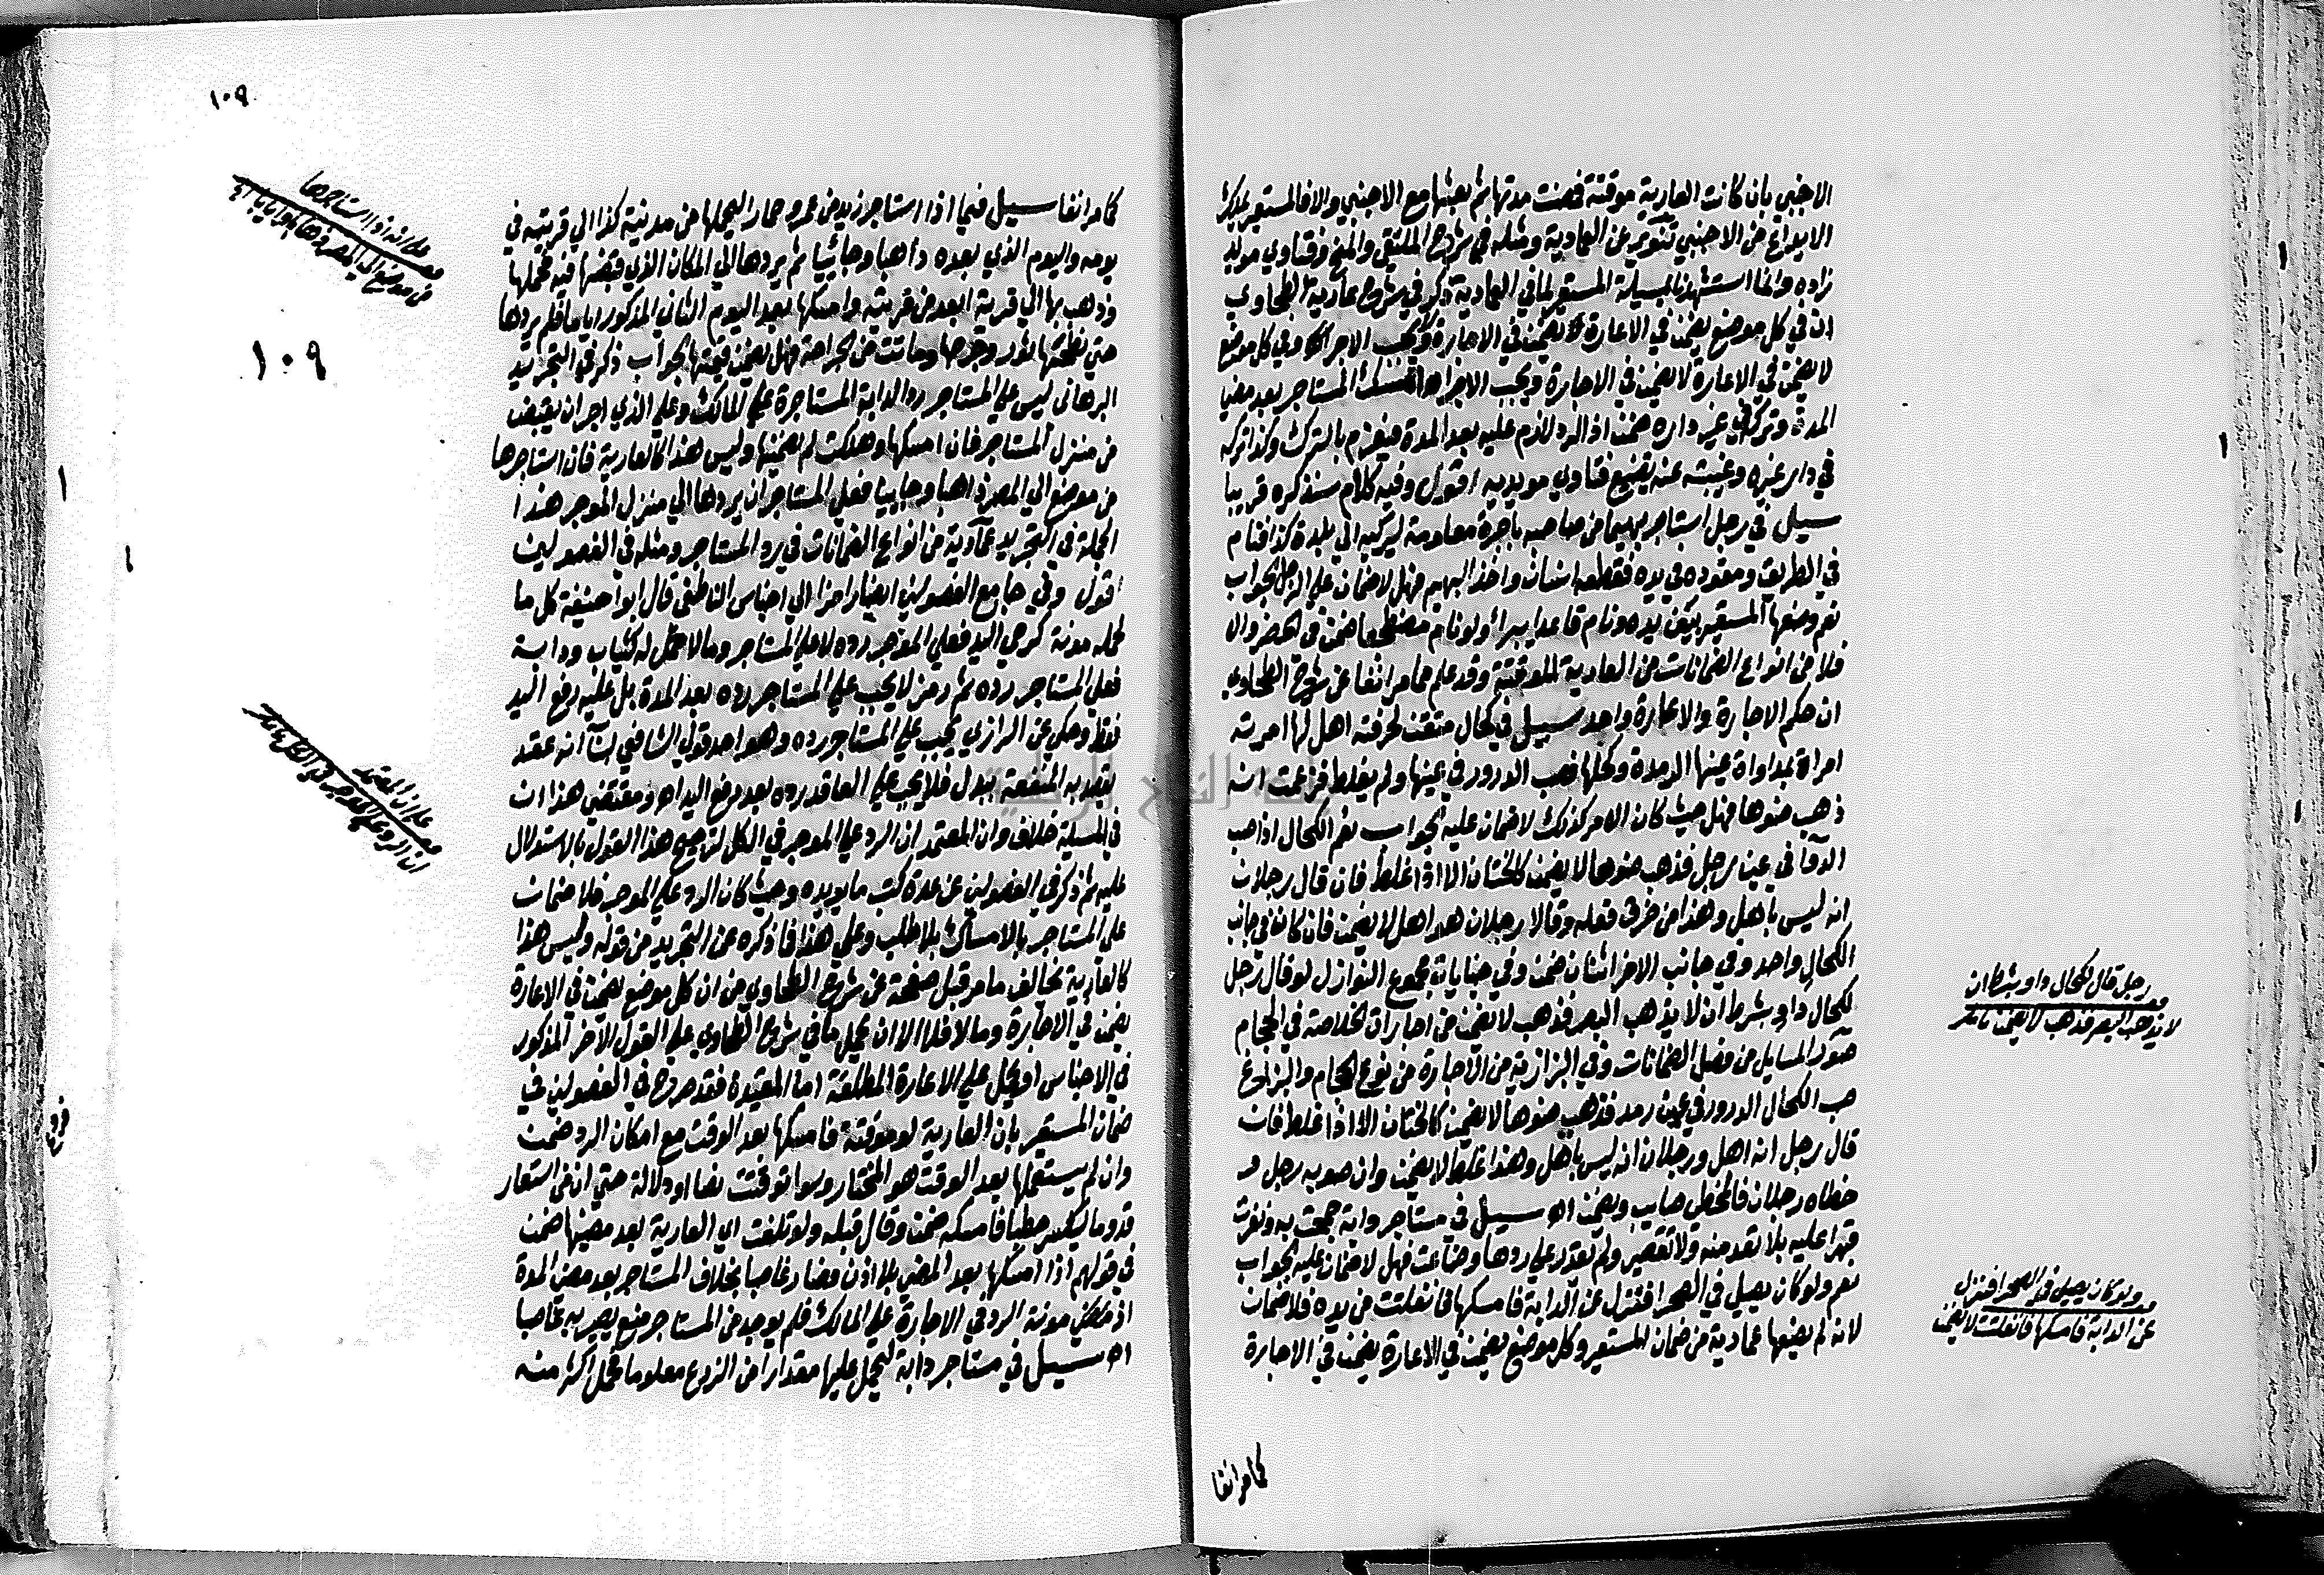 الاجنبي بان كانت العارية موقتة فمضت مدتها ثم بعثها مع الاجنبي والا فالمستعير يملك
الايداع من الاجنبي تنوير عن العمادية ومثله في شرح الملتقى والمنح وفتاوي مويد
زاده وانما استشهدنا بمسيلة المستعير لما في العمادية ذكر في شروح عمادية الطحاوي
ان في كل موضع يضمن في الاعارة يضمن في الاجارة ولا يجب الاجر وفي كل موضع
لا يضمن في الاعارة لا يضمن في الاجارة ويجب الاجر امسك المستاجر بعد مضي
المدة وتركه في غير داره ضمن اذ الرد لازم عليه بعد المدة فيغرم بالترك وكذا تركه
في دار غيره وغيبته عنه تضييع فتاوي مويديه اقول وفيه كلام سنذكره قريبا
سيل في رجل استاجر بهيما من صاحبه باجرة معلومة ليركبه الى بلدة كذا فنام
في الطريق ومقوده في يده فقطعه انسان واخذ البهيم فهل لا ضمان على الرجل الجواب
نعم وضعها المستعير بين يديه ونام قاعدا يبرأ ولو نام مضطجعا ضمن في الحضر والا
فلا من انواع الضمانات من العارية الموقتة وقد علم مما مر انفا عن شروح الطحاوي
ان حكم الاجارة والاعارة واحد سيل في كحال متقن لحرفته اهل لها امرته
امراة بمداواة عينها الرمدة وكحلها فصب الدرور في عينها ولم يغلط فزعمت انه
ذهب ضوها فهل حيث كان الامر كذلك لا ضمان عليه الجواب نعم الكحال اذا صب
الدوا في عين رجل فذهب ضوها لا يضمن كالختان الا اذا غلط فان قال رجلان
انه ليس باهل وهذا من خرق فعله وقالا رجلان هو اهل لا يضمن فان كان في جانب
الكحال واحد وفي جانب الاخر اثنان ضمن وفي جنايات مجموع النوازل لو قال رجل
لكحال داو بشرط ان لا يذهب البصر فذهب لا يضمن من اجارات الخلاصة في الحجام
صور المسايل من فصل الضمانات وفي البزازية من الاجارة من نوع الحجام والبزاغ
صب الكحال الدرور في عين رمد فذهب ضوها لا يضمن كالختان الا اذا غلط فان
قال رجل انه اهل ورجلان انه ليس باهل وهذا غلط لا يضمن وان صوبه رجل و
خطاه رجلان فالمخطي صايب ويضمن اه سيل في مستاجر دابة جمحت به ونفرت
قهرا عليه بلا تعد منه ولا تقصير ولم يقدر على ردها وضاعت فهل لا ضمان عليه الجواب
نعم ولو كان يصلي في الصحرا فنزل عن الدابة فامسكها فانفلتت من يده فلا ضمان
لانه لم يضيعها عمادية من ضمان المستعير وكل موضع يضمن في الاعارة يضمن في الاجارة
كما مر انفا
رجل قال لكحال داو بشرط ان
لا يذهب البصر فذهب لا يضمن
ولو كان يصلي في الصحرا فنزل
عن الدابة فامسكها فانفلتت لا يضمن
١٠٩
كما مر انفا سيل فيما اذا استاجر زيد من عمرو حمارا ليحملها من مدينة كذا الي قريته في
يومه واليوم الذي بعده ذاهبا وجائيا ثم يردها الي المكان الذي قبضها فيه فحملها
وذهب بها الي قرية ابعد من قريته وامسكها بعد اليوم الثاني المذكور اياما فلم يردها
حتي نطحها ثور وجرحها وماتت من الجراحة فهل يضمن قيمتها الجواب ذكر في التجريد
البرهاني ليس علي المستاجر رد الدابة المستاجرة علي المالك وعلي الذي اجر ان يقبض
من منزل المستاجر فان امسكها وهلكت لم يضمنها وليس هذا كالعارية فان استاجرها
من موضع الي المصر ذاهبا وجاييا فعلي المستاجر ان يردها الي منزل الموجر هذا
الجملة في التجريد عمادية من انواع الضمانات في رد المستاجر ومثله في الفصولين
اقول وفي جامع الفصولين ايضا رامزا الي اجناس الناطفي قال ابو حنيفة كل ما
لحمله مونة كرحي اليد فعلي الموجر رده لا علي المستاجر وما لا حمل له كثياب ودابة
فعلي المستاجر رده ثم رمز لا يجب علي المستاجر رده بعد المدة بل عليه رفع اليد
فقط وحكي عن الرازي يجب علي المستاجر رده وهو احد قولي الشافعي لنا انه عقد
يفيد به المنفعة ببدل فلا يجب علي العاقد رده بعد رفع اليد اه ومقتضي هذا ان
في المسيلة خلافا وان المعتمد ان الرد علي الموجر في الكل لترجيح هذا القول بالاستدلال
عليه ثم ذكر في الفصولين عن عدة كتب ما يويده وحيث كان الرد علي الموجر فلا ضمان
علي المستاجر بالامساك بلا طلب وعلي هذا فما ذكره عن التجريد من قوله وليس هذا
كالعارية يخالف ما مر قبل صفحة عن شرح الطحاوي من ان كل موضع يضمن في الاعارة
يضمن في الاجارة وما لا فلا الا ان يحمل ما في شرح الطحاوي علي القول الاخر المذكور
في الاجناس او يحمل علي الاعارة المطلقة اما المقيدة فقد صرح في الفصولين في
ضمان المستعير بان العارية لو موقتة فامسكها بعد الوقت مع امكان الرد ضمن
وان لم يستعملها بعد الوقت هو المختار وسوا توقتت نصا او دلالة حتي ان من استعار
قدوما ليكسر حطبا فامسكه ضمن وقال قبله ولو تلفت اي العارية بعد مضيها ضمن
في قولهم اذا امسكها بعد المضي بلا اذن فصار غاصبا بخلاف المستاجر بعد مضي المدة
اذ مونة الرد في الاجارة علي المالك فلم يوجد من المستاجر منع يصير به غاصبا
اه سيل في مستاجر دابة ليحمل عليها مقدارا من الزرع معلوما فحمل اكثر منه
استاجرها
من موضع الي المصر ذاهبا وجاييا
١٠٩
ان المعتمد
ان الرد علي الموجر في الكل